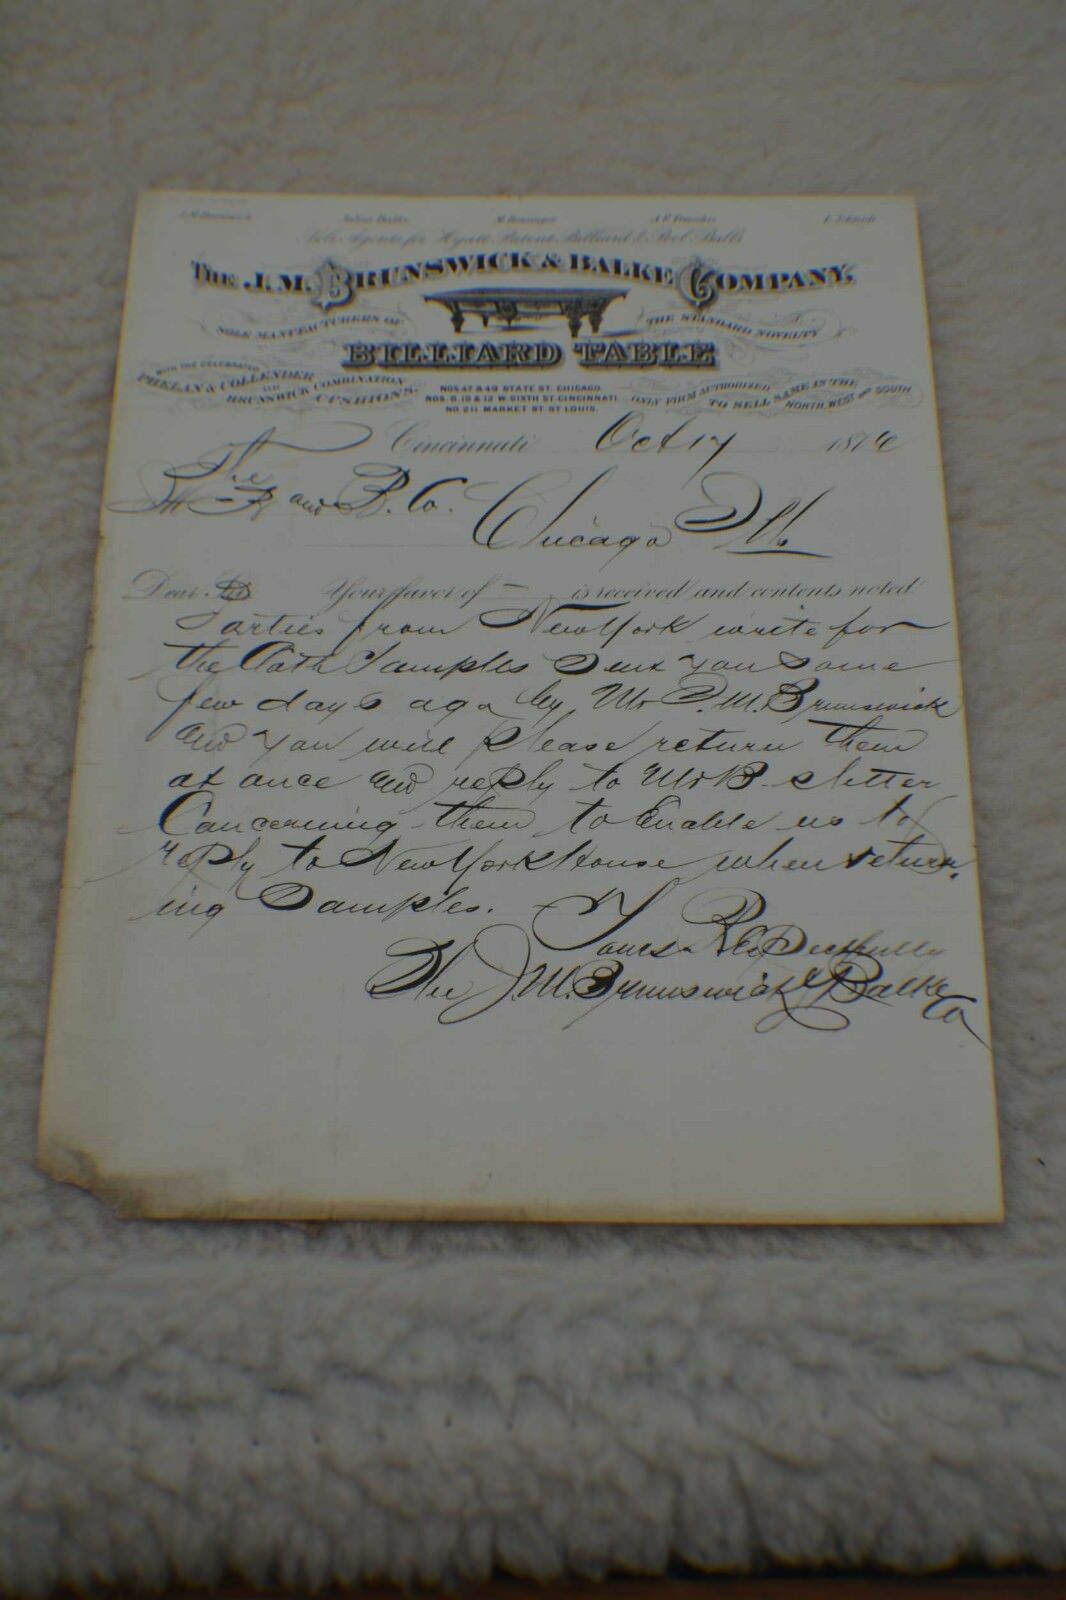 J. M. Brunswick Julius Balke M. Bensinger A. F. Troescher E. Schmidt
Sole Agents for Hyatt Patent Billiard & Pool Balls
THE J. M. BRUNSWICK & BALKE COMPANY,
SOLE MANUFACTURERS OF THE STANDARD NOVELTY
BILLIARD TABLE
WITH THE CELEBRATED
PHELAN & COLLENDER
OR
BRUNSWICK COMBINATION
CUSHIONS.
NOS 47 & 49 STATE ST. CHICAGO.
NOS. 8, 10 & 12 W. SIXTH ST. CINCINNATI.
NO 211 MARKET ST ST LOUIS.
ONLY FIRM AUTHORIZED
TO SELL SAME IN THE
NORTH, WEST AND SOUTH.
Cincinnati Oct 17 1876
The
B and B. Co. Chicago Ills
Dear Sir Your favor of – is received and contents noted
Parties from New York write for
the Samples Sent you some
few days ago by Mr J. M. Brunswick
and you will please return them
at once and reply to Mr B-s letter
Concerning them to Enable us to
reply to New York House when return-
ing Samples.
Yours Respectfully
The J. M. Brunswick & Balke
Co